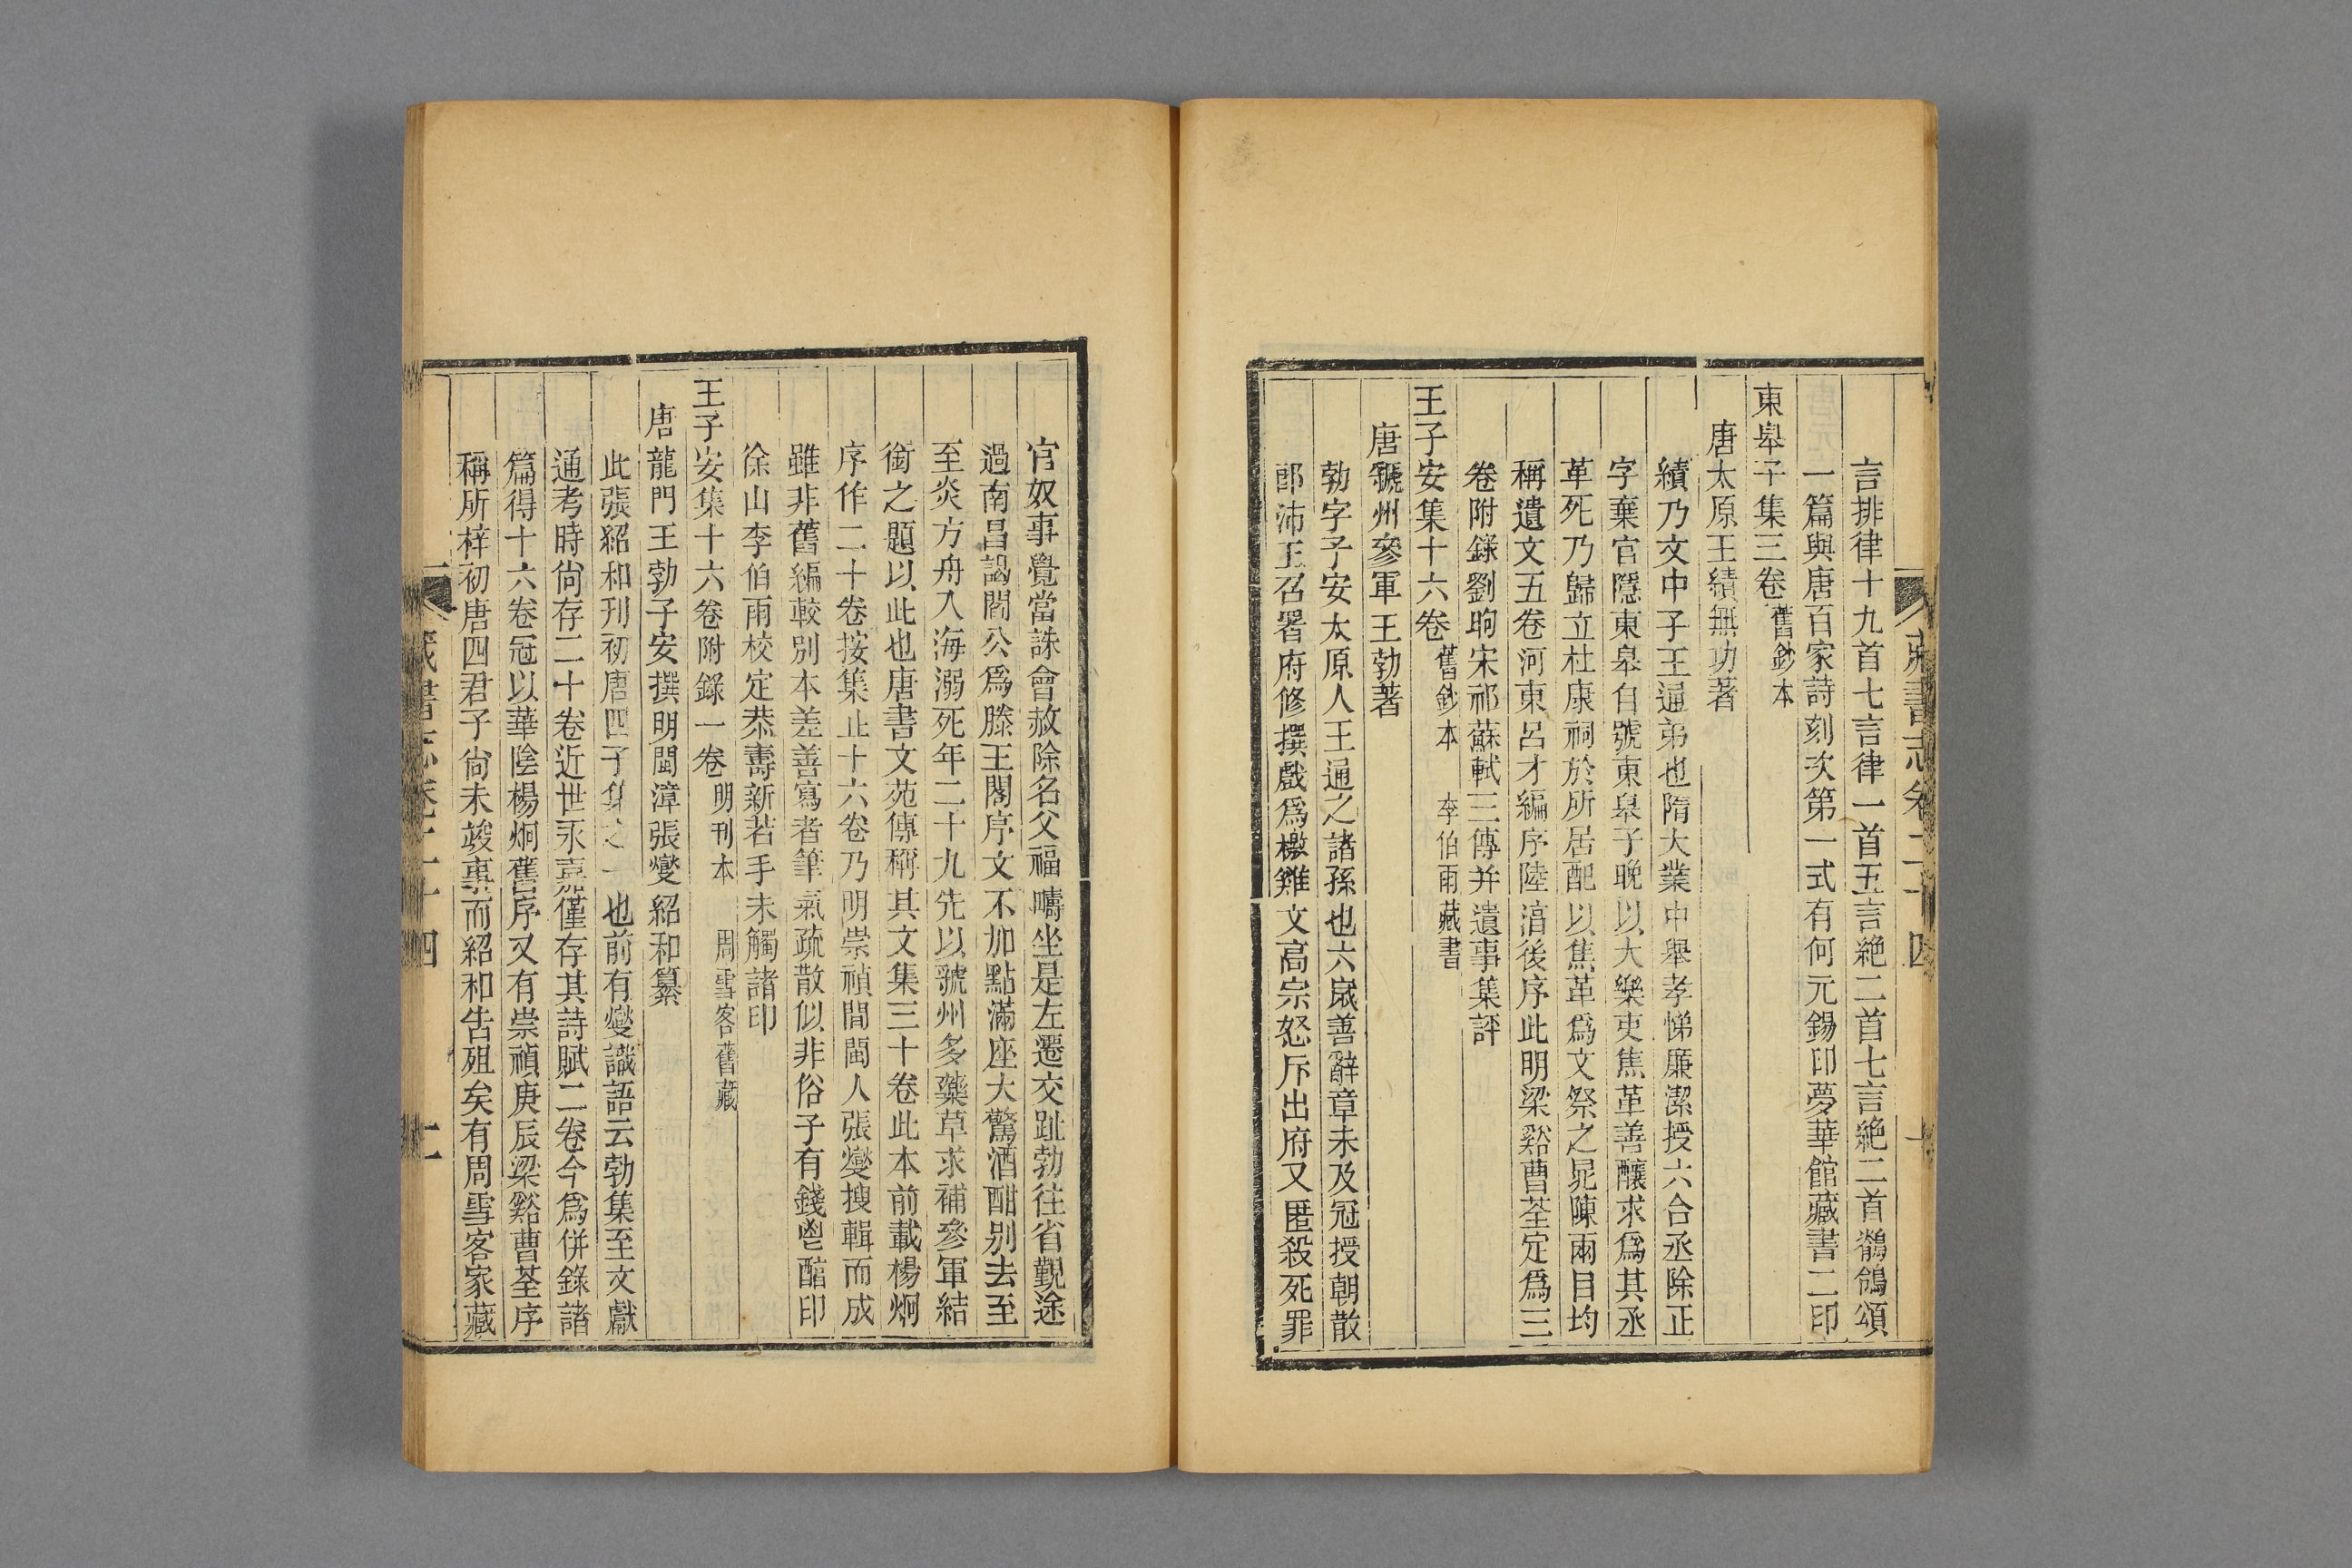 藏書志卷二十四
言排律十九首七言律一首五言絶二首七言絶二首鶺鴒頌
一篇與唐百家詩刻次第一式有何元錫印夢華館藏書二印
東皋子集三卷 舊鈔本
唐太原王績無功著
績乃文中子王通弟也隋大業中舉孝悌廉潔授六合丞除正
字棄官隱東皋自號東皋子晚以大樂吏焦革善釀求爲其丞
革死乃歸立杜康祠於所居配以焦革爲文祭之晁陳兩目均
稱遺文五卷河東呂才編序陸淳後序此明梁谿曹荃定爲三
卷附錄劉昫宋祁蘇軾三傳并遺事集評
王子安集十六卷 舊鈔本 李伯雨藏書
唐虢州參軍王勃著
勃字子安太原人王通之諸孫也六歲善辭章未及冠授朝散
郎沛王召署府修撰戲爲檄雞文高宗怒斥出府又匿殺死罪
官奴事覺當誅會赦除名父福疇坐是左遷交趾勃往省覲途
過南昌謁閻公爲滕王閣序文不加點滿座大驚酒酣别去至
至炎方舟入海溺死年二十九先以虢州多藥草求補參軍結
銜之題以此也唐書文苑傳稱其文集三十卷此本前載楊炯
序作二十卷按集止十六卷乃明崇禎間閩人張燮搜輯而成
雖非舊編較别本差善寫者筆氣疏散似非俗子有錢鬯醅印
徐山李伯雨校定恭壽新若手未觸諸印
王子安集十六卷附錄一卷 明刊本 周雪客舊藏
唐龍門王勃子安撰明閩漳張燮紹和纂
此張紹和刊初唐四子集之一也前有燮識語云勃集至文獻
通考時尙存二十卷近世永嘉僅存其詩賦二卷今爲併錄諸
篇得十六卷冠以華陰楊炯舊序又有崇禎庚辰梁谿曹荃序
稱所梓初唐四君子尙未竣事而紹和告殂矣有周雪客家藏
藏書志卷二十四 十一